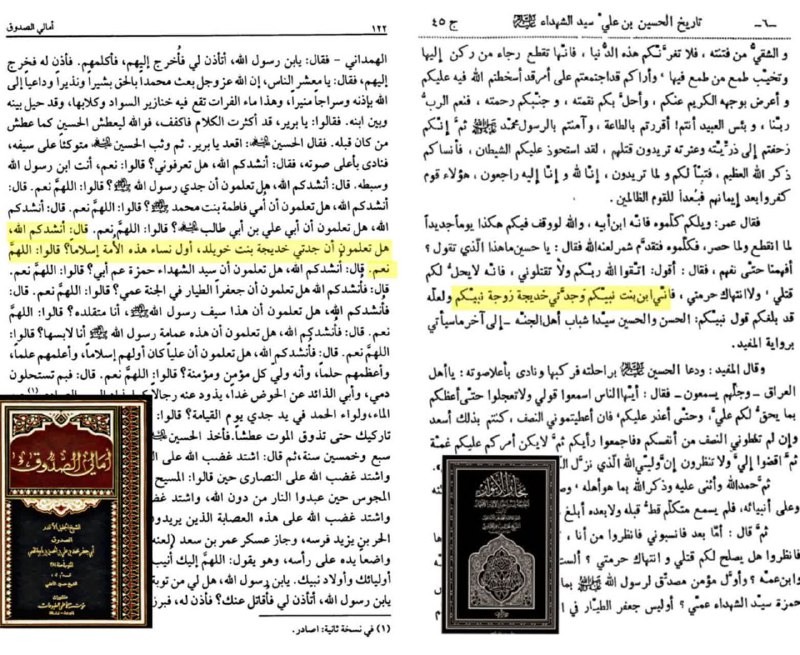 -٦- تاريخ الحسين بن علي سيد الشهداء عليه السلام ج ٤٥
و الشقيُّ من فتنته ، فلا تغرَّنّكم هذه الدُّنيا ، فانّها تقطع رجاء من ركن إليها
وتخيّب طمع من طمع فيها ، وأراكم قداجتمعتم على أمرقد أسخطتم الله فيه عليكم
و أعرض بوجهه الكريم عنكم ، وأحلَّ بكم نقمته ، و جنّبكم رحمته ، فنعم الربُّ
ربّنا ، و بئس العبيد أنتم! أقررتم بالطاعة ، وآمنتم بالرسول محمّد ﷺ ثمَّ إنّكم
زحفتم إلى ذرِّيّته وعترته تريدون قتلهم ، لقد استحوذ عليكم الشيطان ، فأنساكم
ذكر الله العظيم ، فتبّاً لكم و لما تريدون ، إنّا لله و إنّا إليه راجعون ، هؤلاء قوم
كفروا بعد إيمانهم فبُعداً للقوم الظالمين .
فقال عمر: ويلكم كلّموه فانّه ابن أبيه ، والله لووقف فيكم هكذا يوماًجديداً
لما انقطع ولما حصر، فكلّموه فتقدَّم شمر لعنه الله فقال : يا حسين ماهذا الّذي تقول ؟
أفهمنا حتّى نفهم ، فقال : أقول: اتّقوا الله ربّكم ولا تقتلوني ، فانّه لايحلُّ لكم
قتلي ، ولا انتهاك حرمتي ، فانّي ابن بنت نبيّكم وجدَّتي خديجة زوجة نبيّكم ولعلّه
قد بلغكم قول نبيّكم: الحسن والحسين سيّدا شباب أهل الجنّة ــ إلى آخر ماسيأتي
برواية المفيد.
وقال المفيد: ودعا الحسين عليه السلام براحلته فركبها ونادى بأعلاصوته : ياأهل
العراق ــ وجلّهم يسمعون ــ فقال : أيّها الناس اسمعوا قولي ولاتعجلوا حتّى أعظكم
بما يحقُّ لكم عليَّ ، وحتّى أعذر عليكم ، فان أعطيتموني النصف ، كنتم بذلك أسعد
وإن لم تعطوني النصف من أنفسكم فاجمعوا رأيكم ثمَّ لايكن أمركم عليكم غمّة
ثمَّ اقضوا إليَّ ولا تنظرون إنَّ وليّي الله الّذي نزَّل
ثمَّ حمدالله وأثنى عليه وذكر الله بما هو أهله ،
وعلى أنبيائه ، فلم يسمع متكلّم قطُّ قبله ولابعده أبلغ
ثمَّ قال : أمّا بعد فانسبوني فانظروا من أنا ،
فانظروا هل يصلح لكم قتلي و انتهاك حرمتي ؟
وابن عمّه ؟ وأوَّل مؤمن مصدِّق لرسول الله ﷺ بما
حمزة سيّد الشهداء عمّي ؟ أوليس جعفر الطيّار في
بحار الأنوار
١٢٢ أمالي الصدوق
الهمداني - فقال: يابن رسول الله، أتأذن لي فأخرج إليهم، فأكلمهم. فأذن له فخرج
إليهم، فقال: يا معشر الناس، إن الله عز وجل بعث محمداً بالحق بشيراً ونذيراً وداعياً إلى
الله بإذنه وسراجاً منيراً، وهذا ماء الفرات تقع فيه خنازير السواد وكلابها، وقد حيل بينه
وبين ابنه. فقالوا: يا برير، قد أكثرت الكلام فاكفف، فوالله ليعطش الحسين كما عطش
من كان قبله. فقال الحسين عليه السلام: اقعد يا برير. ثم وثب الحسين عليه السلام متوكئاً على سيفه،
فنادى بأعلى صوته، فقال: أنشدكم الله، هل تعرفوني؟ قالوا: نعم، أنت ابن رسول الله
وسبطه. قال: أنشدكم الله، هل تعلمون أن جدي رسول الله ﷺ؟ قالوا: اللهمَّ نعم. قال:
أنشدكم الله، هل تعلمون أن أمي فاطمة بنت محمد ﷺ؟ قالوا: اللهمَّ نعم. قال: أنشدكم
الله، هل تعلمون أن أبي علي بن أبي طالب عليه السلام؟ قالوا: اللهمَّ نعم. قال: أنشدكم الله،
هل تعلمون أن جدتي خديجة بنت خويلد، أول نساء هذه الأمة إسلاماً؟ قالوا: اللهمَّ
نعم. قال: أنشدكم الله، هل تعلمون أن سيد الشهداء حمزة عم أبي؟ قالوا: اللهمَّ نعم.
قال: فأنشدكم الله، هل تعلمون أن جعفراً الطيار في الجنة عمي؟ قالوا: اللهمَّ نعم. قال:
فأنشدكم الله، هل تعلمون أن هذا سيف رسول الله ﷺ، أنا متقلده؟ قالوا: اللهمَّ
نعم. قال: فأنشدكم الله، هل تعلمون أن هذه عمامة رسول الله ﷺ أنا لابسها؟ قالوا:
اللهمَّ نعم. قال: فأنشدكم الله، هل تعلمون أن علياً كان أولهم إسلاماً، وأعلمهم علماً،
وأعظمهم حلماً، وأنه ولي كل مؤمن ومؤمنة؟ قالوا: اللهمَّ نعم. قال: فبم تستحلون
دمي، وأبي الذائد عن الحوض غداً، يذود عنه رجالاً (١)
الماء، ولواء الحمد في يد جدي يوم القيامة؟ قالوا:
تاركيك حتى تذوق الموت عطشاً. فأخذ الحسين
سبع وخمسين سنة، ثم قال: اشتد غضب الله على
غضب الله على النصارى حين قالوا: المسيح
المجوس حين عبدوا النار من دون الله، واشتد غضب
واشتد غضب الله على هذه العصابة الذين يريدون
الحر بن يزيد فرسه، وجاز عسكر عمر بن سعد (لعنه
واضعاً يده على رأسه، وهو يقول: اللهمَّ إليك أنيب
أوليائك وأولاد نبيك. يابن رسول الله، هل لي من توبة
يابن رسول الله، أتأذن لي فأقاتل عنك؟ فأذن له، فبرز
(١) في نسخة ثانية: اصادر.
أمالي الصدوق
الصدوق